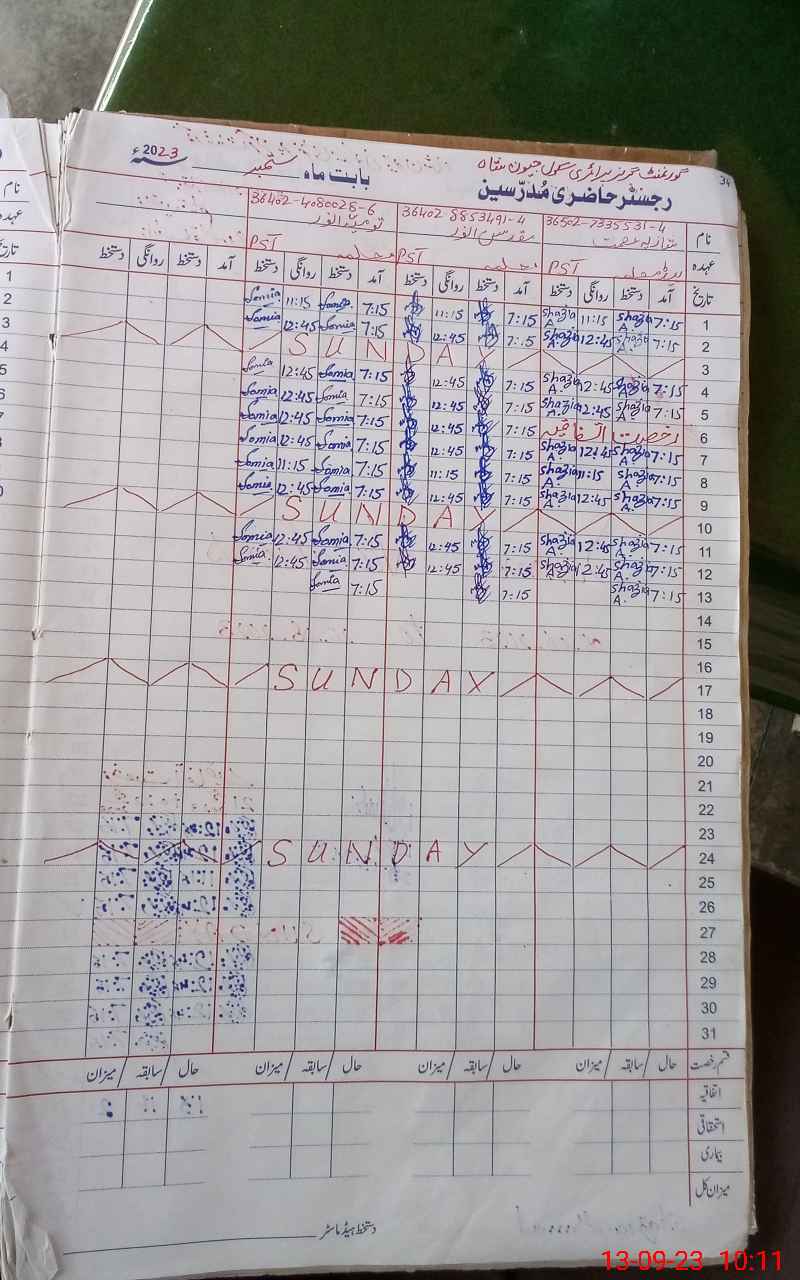 34
گورنمنٹ گرلز پرائمری سکول جیون شاہ
رجسٹر حاضری مُدرّسین
بابت ماہ ستمبر
2023ء
نام
36502-7335531-4
36402-8853491-4
36402-4080028-6
عہدہ
PST
PST معلمہ
PST معلمہ
تاریخ آمد دستخط روانگی دستخط آمد دستخط روانگی دستخط آمد دستخط روانگی دستخط آمد دستخط روانگی دستخط
1 7:15 Shazia A. 11:15 Shazia A. 7:15 11:15 7:15 Samia 11:15 Samia
2 7:15 Shazia A. 12:45 Shazia A. 7:15 12:45 7:15 Samia 12:45 Samia
3 SUNDAY
4 7:15 Shazia A. 12:45 Shazia A. 7:15 12:45 7:15 Samia 12:45 Samia
5 7:15 Shazia A. 12:45 Shazia A. 7:15 12:45 7:15 Samia 12:45 Samia
6 رخصت اتفاقیہ 7:15 12:45 7:15 Samia 12:45 Samia
7 7:15 Shazia A. 12:45 Shazia A. 7:15 12:45 7:15 Samia 12:45 Samia
8 7:15 Shazia A. 11:15 Shazia A. 7:15 11:15 7:15 Samia 11:15 Samia
9 7:15 Shazia A. 12:45 Shazia A. 7:15 12:45 7:15 Samia 12:45 Samia
10 SUNDAY
11 7:15 Shazia A. 12:45 Shazia A. 7:15 12:45 7:15 Samia 12:45 Samia
12 7:15 Shazia A. 12:45 Shazia A. 7:15 12:45 7:15 Samia 12:45 Samia
13 7:15 Shazia A. 7:15 7:15 Samia
14
15
16
17 SUNDAY
18
19
20
21
22
23
24 SUNDAY
25
26
27
28
29
30
31
قسم رخصت حال / سابقہ / میزان حال / سابقہ / میزان حال / سابقہ / میزان حال / سابقہ / میزان
اتفاقیہ
استحقاقی
بیماری
میزان کل
دستخط ہیڈ ماسٹر
13-09-23 10:11